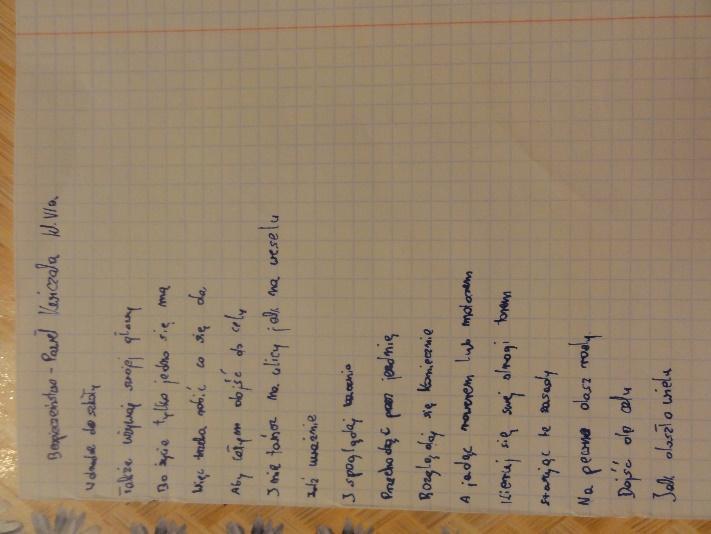 Bezpieczeństwo - Paweł kl. VIa.
do szkoły
Także używaj swojej głowy
Bo życie tylko jedno się ma
Więc trzeba robić co się da
Aby całym dojść do celu
I nie tańcz na ulicy jak na weselu
Idź uważnie
I spoglądaj
Przechodząc przez jezdnię
Rozglądaj się koniecznie
A jadąc rowerem lub motorem
Kieruj się swej drogi torem
Stosując te zasady
Na pewno dasz rady
Dojść do celu
Jak doszło wielu